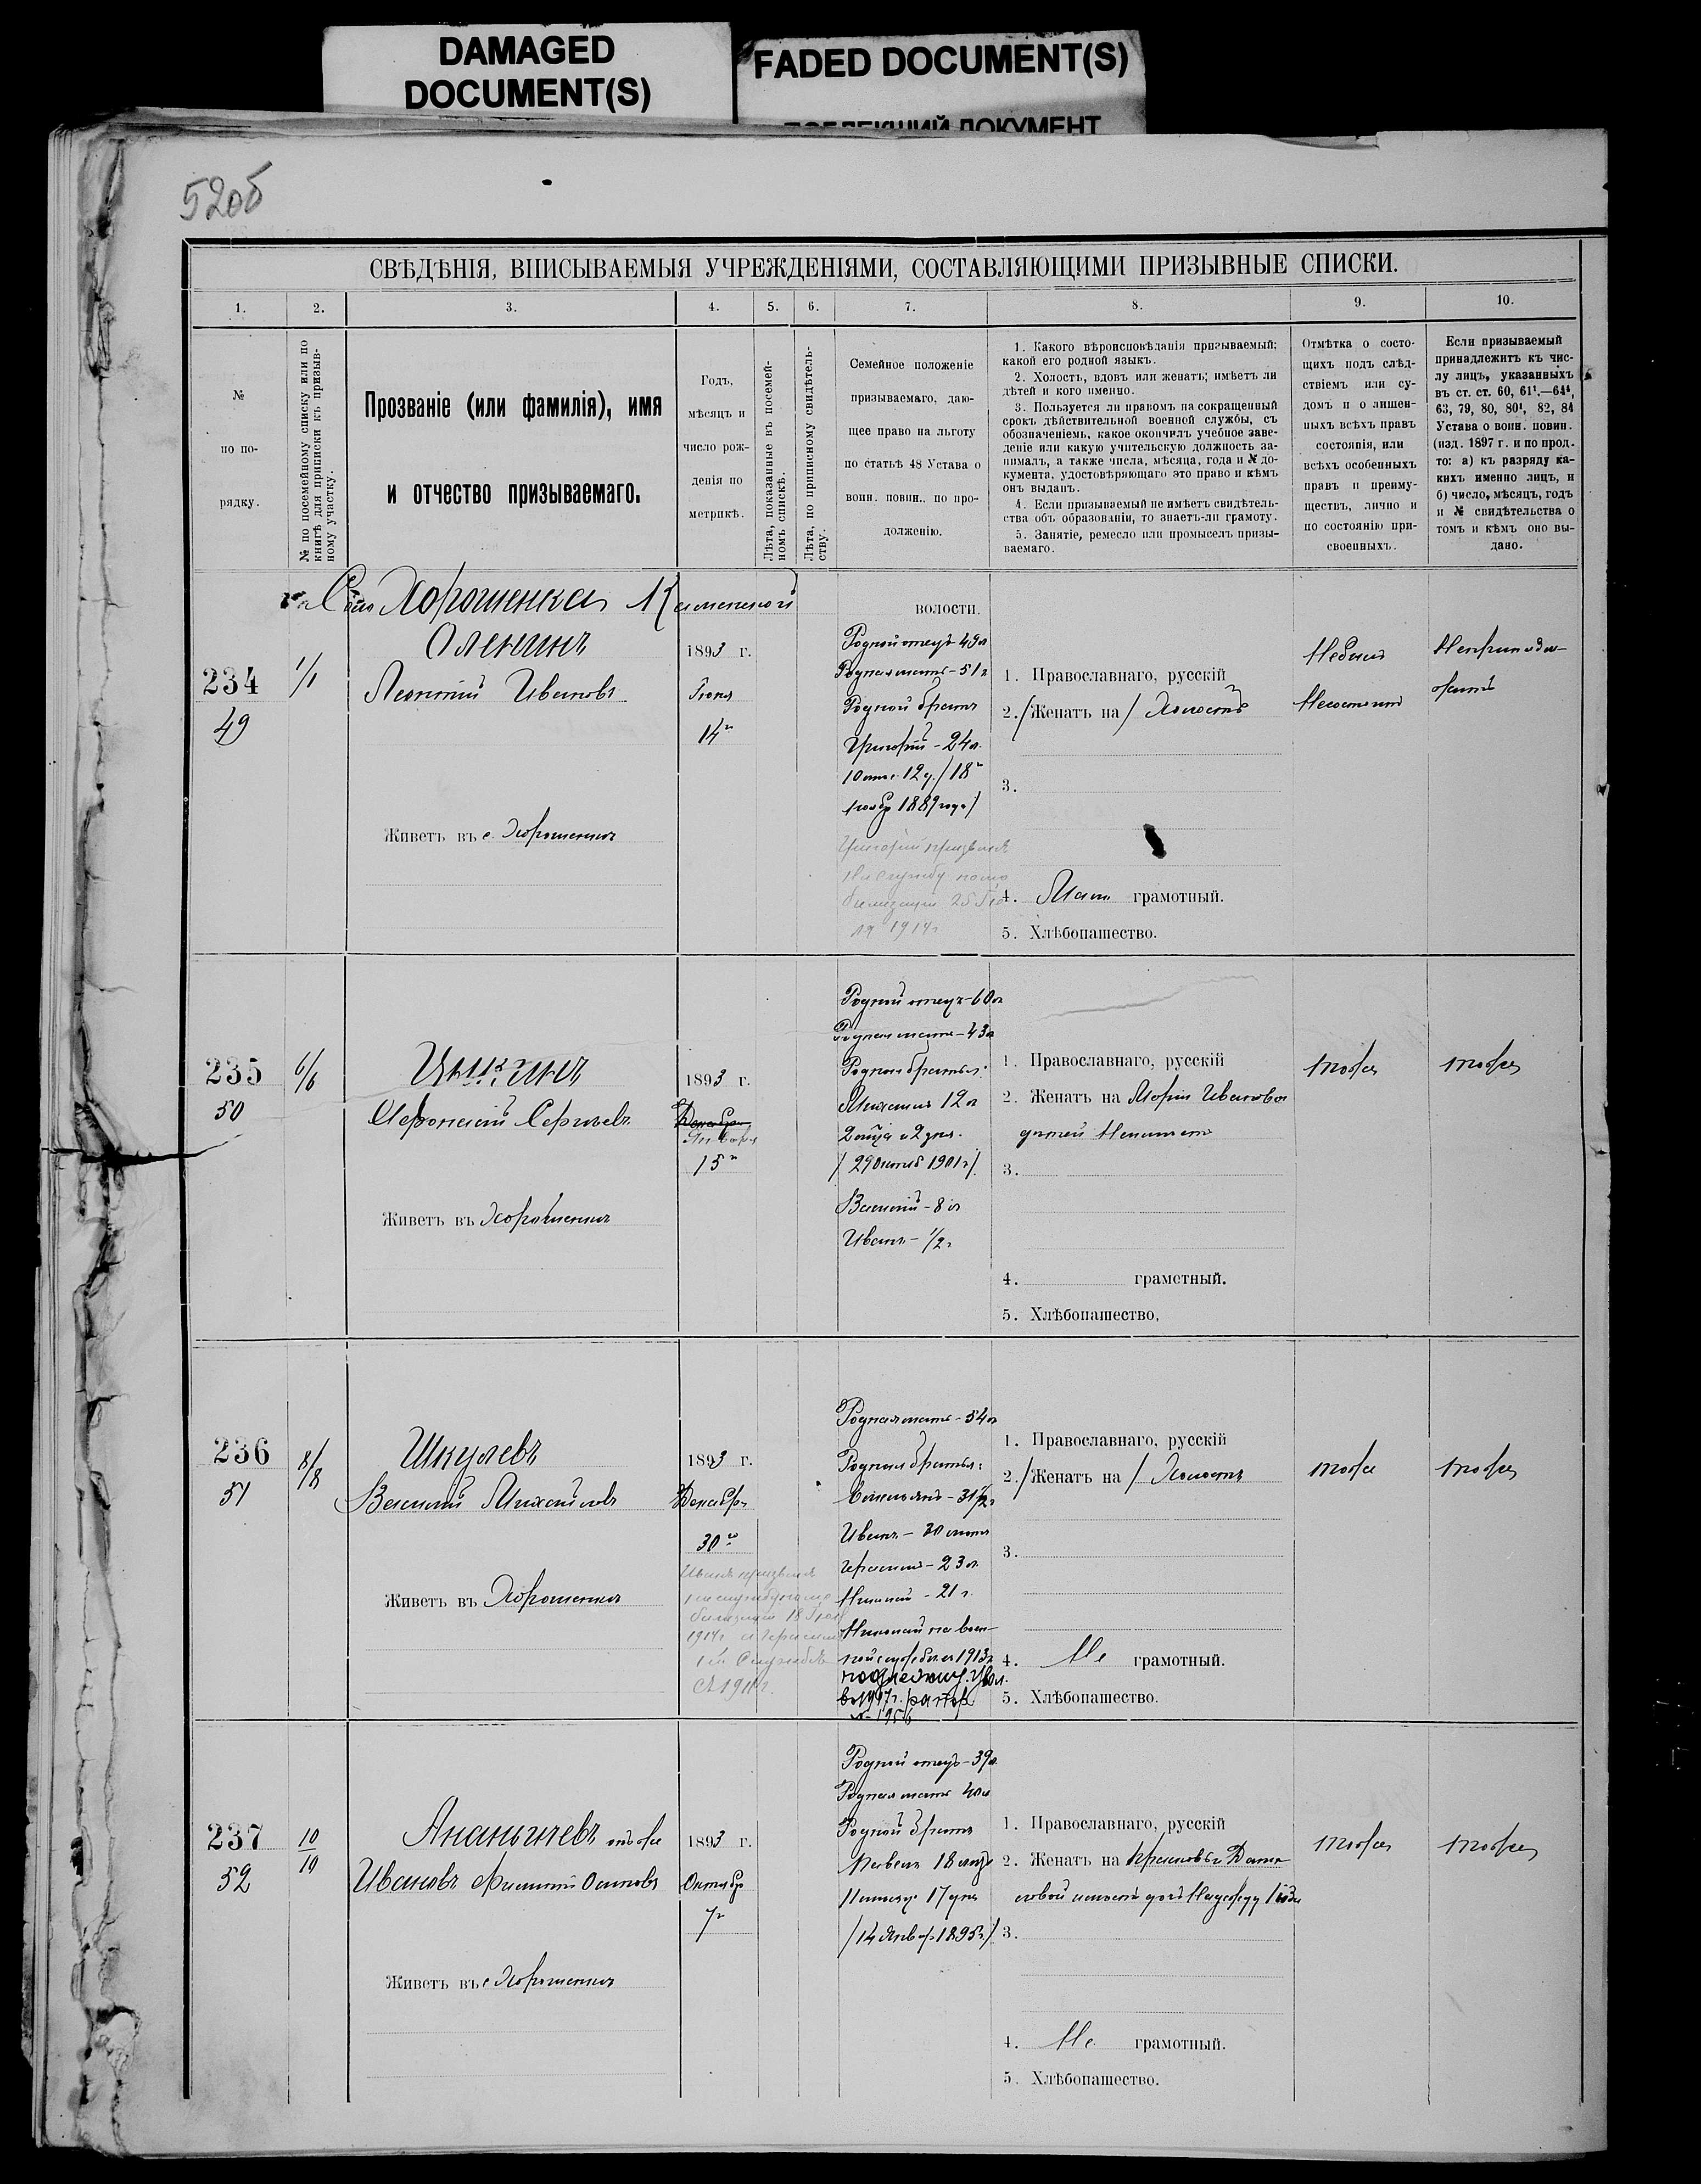 DAMAGED
DOCUMENT(S)
FADED DOCUMENT(S)
520б
СВѢДѢНІЯ, ВПИСЫВАЕМЫЯ УЧРЕЖДЕНІЯМИ, СОСТАВЛЯЮЩИМИ ПРИЗЫВНЫЕ СПИСКИ.
1. 2. 3. 4. 5. 6. 7. 8. 9. 10.
№
по по-
рядку.
№ по посемейному списку или по
книгѣ для приписки къ призыв-
ному участку.
Прозваніе (или фамилія), имя
и отчество призываемаго.
Годъ,
мѣсяцъ и
число рож-
денія по
метрикѣ.
Лѣта, показанные въ посемей-
номъ спискѣ.
Лѣта, по приписному свидѣтель-
ству.
Семейное положеніе
призываемаго, даю-
щее право на льготу
по статьѣ 48 Устава о
воин. повин., по про-
долженію.
1. Какого вѣроисповѣданія призываемый;
какой его родной языкъ.
2. Холостъ, вдовъ или женатъ; имѣетъ ли
дѣтей и кого именно.
3. Пользуется ли правомъ на сокращенный
срокъ дѣйствительной военной службы, съ
обозначеніемъ, какое окончилъ учебное заве-
деніе или какую учительскую должность за-
нималъ, а также числа, мѣсяца, года и № до-
кумента, удостовѣряющаго это право и кѣмъ
онъ выданъ.
4. Если призываемый не имѣетъ свидѣтель-
ства объ образованіи, то знаетъ-ли грамоту.
5. Занятіе, ремесло или промыселъ призы-
ваемаго.
Отмѣтка о состо-
щихъ подъ слѣд-
ствіемъ или су-
домъ и о лишен-
ныхъ всѣхъ правъ
состоянія, или
всѣхъ особенныхъ
правъ и преиму-
ществъ, лично и
по состоянію при-
своенныхъ.
Если призываемый
принадлежитъ къ чис-
лу лицъ, указанныхъ
въ ст. ст. 60, 61¹.—64⁴,
63, 79, 80, 80¹, 82, 84
Устава о воин. повин.
(изд. 1897 г. и по прод.
то: а) къ разряду ка-
кихъ именно лицъ, и
б) число, мѣсяцъ, годъ
и № свидѣтельства о
томъ и кѣмъ оно вы-
дано.
Село Хорошенка Каменской волости.
234
49
1/1
Оленинъ
Леонтій Ивановъ
Живетъ въ с. Хорошенкѣ
1893 г.
Іюня
14
Родной отецъ 49 л
Родная мать - 51 г
Родной братъ
Григорій - 24 л.
10 мѣс. 12 д. / 18
нояб 1889 года /
Григорій призванъ
на службу по мо
билизаціи 25 Ію
ля 1914 г
1. Православнаго, русскій
2. /Женатъ на/ Холостъ
3.
4. Мало грамотный.
5. Хлѣбопашество.
Не былъ
Не состоитъ
Непринадле-
житъ
235
50
6/6
Сергѣевъ
Живетъ въ Хорошенкѣ
1893 г.
Декабря
Января
15
Родной отецъ - 60 л
Родная мать - 43 л
Родныя братья:
12 л
2 мѣсяца 2 дня.
/ 29 октяб 1901 г /
Василій - 8 л
Иванъ - 1/2 г
1. Православнаго, русскій
2. Женатъ на Маріи Ивановой
дѣтей неимѣетъ
3.
4. грамотный.
5. Хлѣбопашество,
тоже
тоже
236
51
8/8
Шкулевъ
Василій Михайловъ
Живетъ въ Хорошенкѣ
1893 г.
Декабря
30
Иванъ призванъ
на службу по мо
билизаціи 18 Іюля
1914 г и Герасимъ
на службѣ
съ 191 г.
Родная мать - 54 л
Родныя братья:
Иванъ - 30 лѣтъ
Герасимъ - 23 л.
Николай - 21 г.
Николай на воен-
ной службѣ съ 1913 г
1. Православнаго, русскій
2. /Женатъ на/ Холостъ
3.
4. Не грамотный.
5. Хлѣбопашество.
тоже
тоже
237
52
10/10
Ананичевъ онъ же
Ивановъ Филиппъ Осиповъ
Живетъ въ с Хорошенкѣ
1893 г.
Октябр
7
Родной отецъ - 39 л
Родная мать 40 л
Родной братъ
Павелъ 18 лѣтъ
11 мѣсяц. 17 дня
/ 14 Январ. 1895 г /
1. Православнаго, русскій
2. Женатъ на
имѣетъ дочь Надежду 1 года
3.
4. Не грамотный.
5. Хлѣбопашество.
тоже
тоже